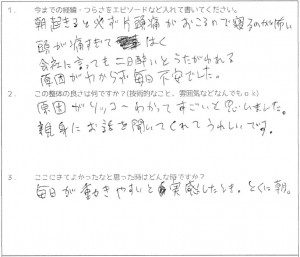 1. 今までの経緯・つらさをエピソードなど入れて書いてください。
朝起きると必ず片頭痛がおこるので寝るのが怖い
頭が痛すぎてはく
会社に言っても二日酔いとうたがわれる
原因がわからず毎日不安でした。
2. この整体の良さは何ですか?(技術的なこと、雰囲気などなんでもok)
原因がわかってすごいと思いました。
親身にお話を聞いてくれてうれしいです。
3. ここにきてよかったなと思った時はどんな時ですか?
毎日が動きやすいと実感したとき。とくに朝。